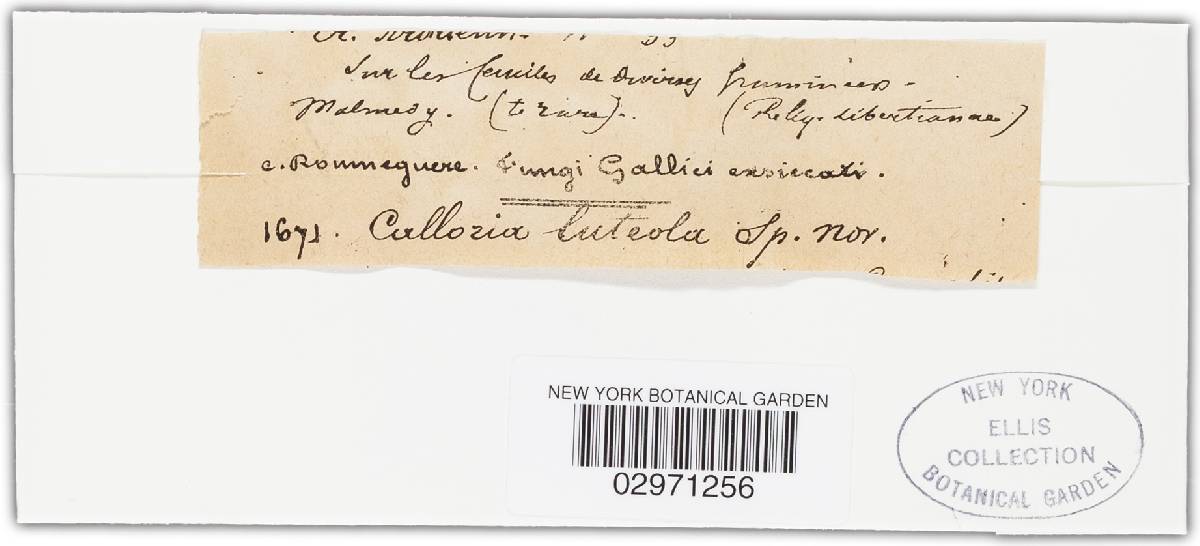 Sur les feuilles de diverses graminées.
Malmedy. (te rare). (Reliq. Libertianae)
C. Roumeguere. Fungi Gallici exsiccati.
1671. Calloria luteola Sp. nov.
NEW YORK BOTANICAL GARDEN
02971256
NEW YORK
ELLIS
COLLECTION
BOTANICAL GARDEN